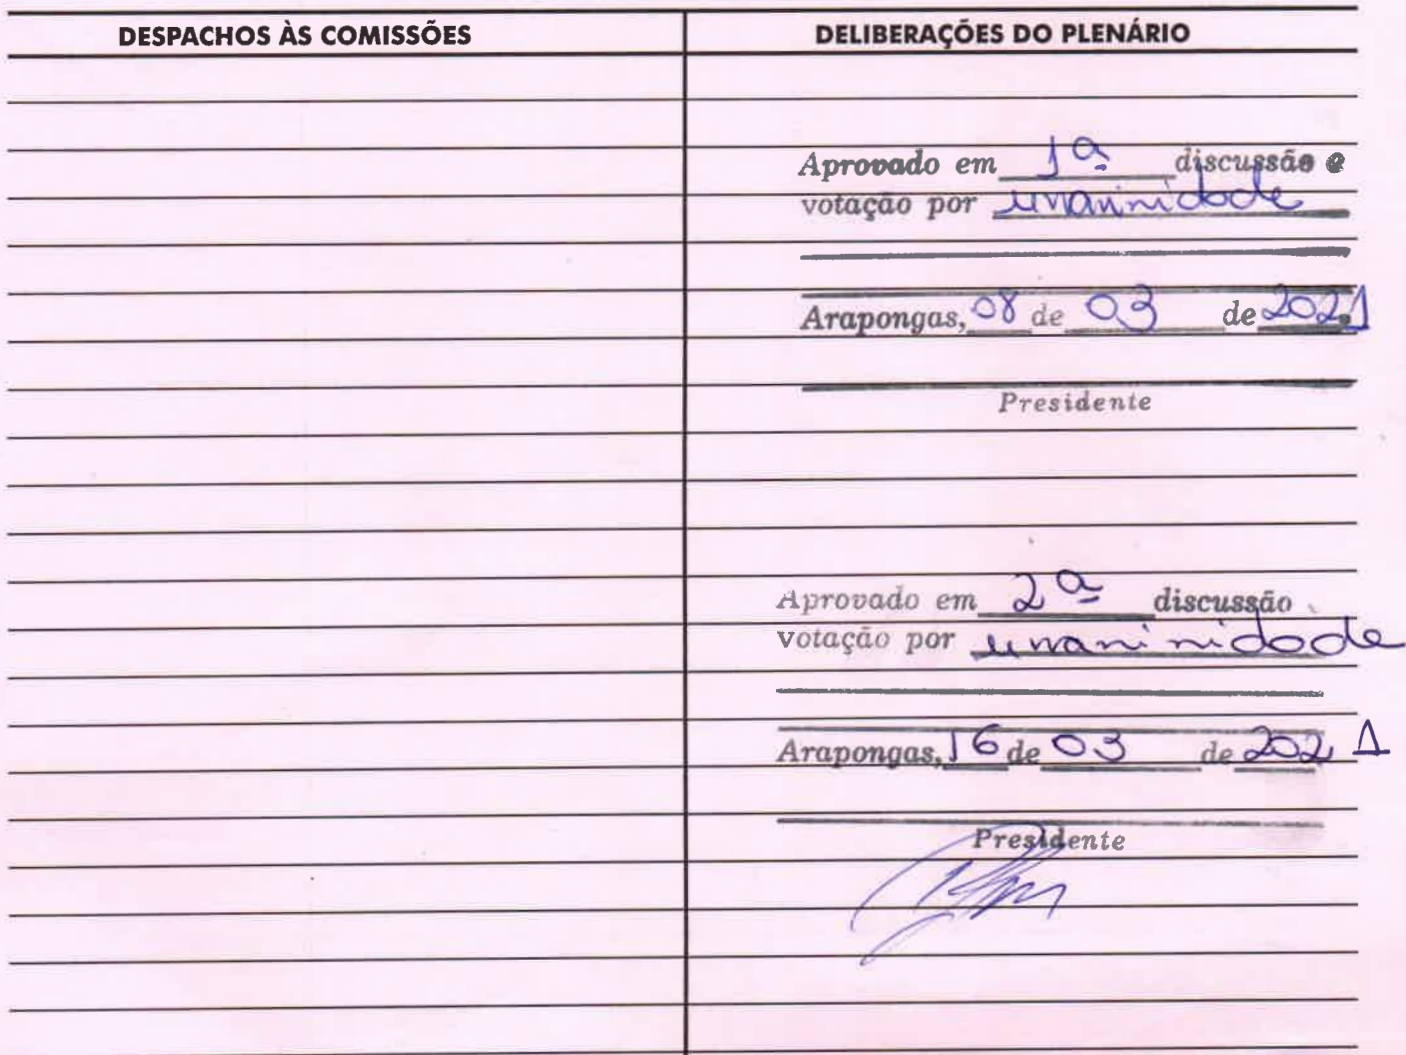 DESPACHOS ÀS COMISSÕES
DELIBERAÇÕES DO PLENÁRIO
Aprovado em 1ª discussão e
votação por unanimidade
Arapongas, 08 de 03 de 2021
Presidente
Aprovado em 2ª discussão
votação por unanimidade
Arapongas, 16 de 03 de 2021
Presidente